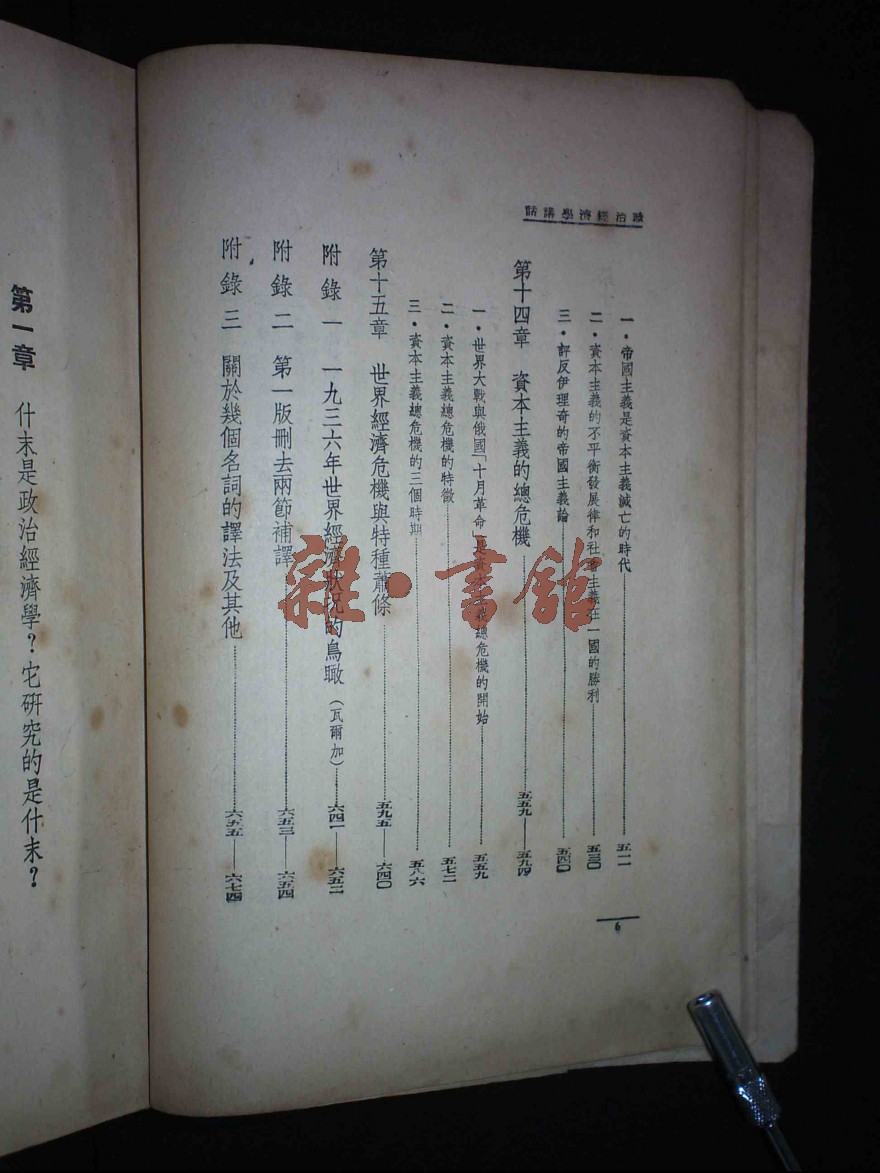 政治經濟學講話
一·帝國主義是資本主義滅亡的時代 五一一
二·資本主義的不平衡發展律和社會主義在一國的勝利 五三〇
三·評反伊理奇的帝國主義論 五四〇
第十四章 資本主義的總危機 五五九——五九四
一·世界大戰與俄國「十月革命」是資本主義總危機的開始 五五九
二·資本主義總危機的特徵 五七二
三·資本主義總危機的三個時期 五八六
第十五章 世界經濟危機與特種蕭條 五九五——六四〇
附錄一 一九三六年世界經濟狀況的鳥瞰(瓦爾加) 六四一——六五二
附錄二 第一版刪去兩節補譯 六五三——六五四
附錄三 關於幾個名詞的譯法及其他 六五五——六七四
6
第一章 什末是政治經濟學?它研究的是什末?
雜·書館